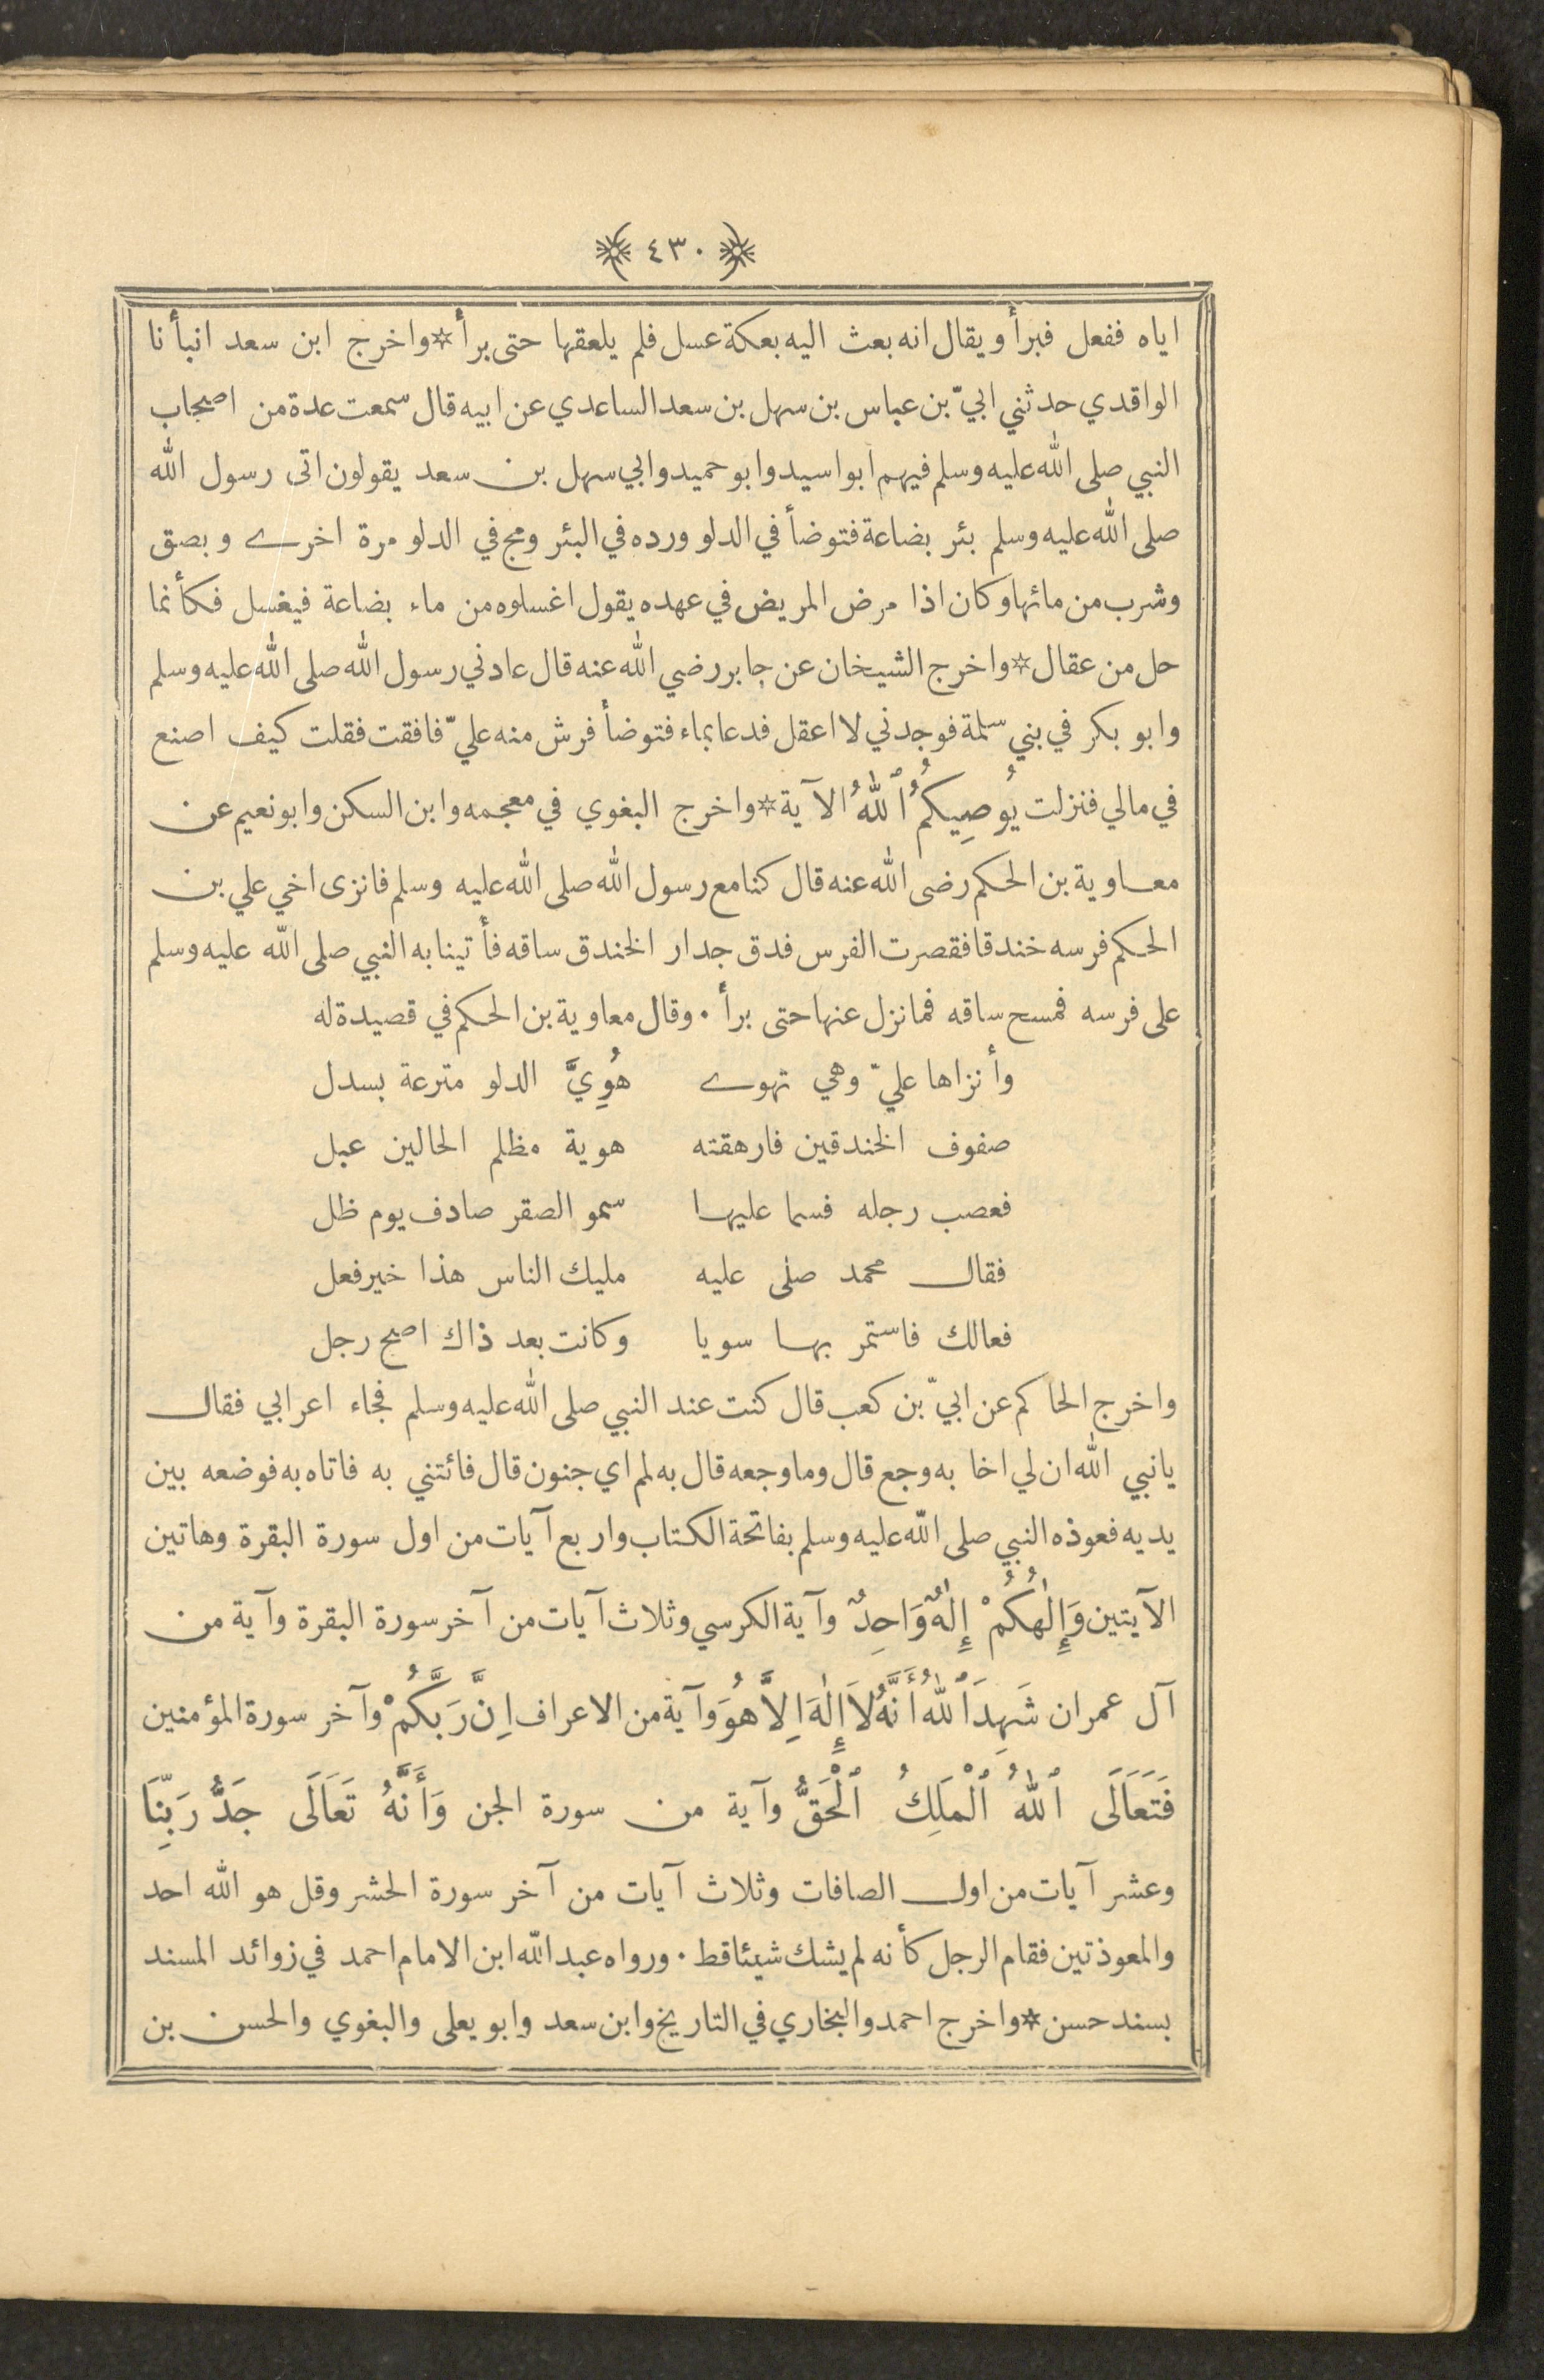 ٤٣٠
اياه ففعل فبرأ ويقال انه بعث اليه بعكة عسل فلم يلعقها حتى برأ * واخرج ابن سعد انبأنا
الواقدي حدثني ابيّ بن عباس بن سهل بن سعد الساعدي عن ابيه قال سمعت عدة من اصحاب
النبي صلى الله عليه وسلم فيهم ابو اسيد وابو حميد وابي سهل بن سعد يقولون اتى رسول الله
صلى الله عليه وسلم بئر بضاعة فتوضأ في الدلو ورده في البئر ومج في الدلو مرة اخرى وبصق
وشرب من مائها وكان اذا مرض المريض في عهده يقول اغسلوه من ماء بضاعة فيغسل فكأنما
حل من عقال * واخرج الشيخان عن جابر رضي الله عنه قال عادني رسول الله صلى الله عليه وسلم
وابو بكر في بني سلمة فوجدني لا اعقل فدعا بماء فتوضأ فرش منه عليّ فافقت فقلت كيف اصنع
في مالي فنزلت يُوصِيكُمُ ٱللهُ الآية * واخرج البغوي في معجمه وابن السكن وابو نعيم عن
معاوية بن الحكم رضى الله عنه قال كنا مع رسول الله صلى الله عليه وسلم فانزى اخي علي بن
الحكم فرسه خندقا فقصرت الفرس فدق جدار الخندق ساقه فأتينا به النبي صلى الله عليه وسلم
على فرسه فمسح ساقه فما نزل عنها حتى برأ . وقال معاوية بن الحكم في قصيدة له
وأنزاها عليّ وهي تهوى هُوِيَّ الدلو مترعة بسدل
صفوف الخندقين فارهقته هوية مظلم الحالين عبل
فعصب رجله فسما عليها سمو الصقر صادف يوم ظل
فقال محمد صلى عليه مليك الناس هذا خير فعل
فعالك فاستمر بها سويا وكانت بعد ذاك اصح رجل
واخرج الحاكم عن ابيّ بن كعب قال كنت عند النبي صلى الله عليه وسلم فجاء اعرابي فقال
يا نبي الله ان لي اخا به وجع قال وما وجعه قال به لمم اي جنون قال فائتني به فاتاه به فوضعه بين
يديه فعوذه النبي صلى الله عليه وسلم بفاتحة الكتاب واربع آيات من اول سورة البقرة وهاتين
الآيتين وَإِلٰهُكُمْ إِلٰهٌ وَاحِدٌ وآية الكرسي وثلاث آيات من آخر سورة البقرة وآية من
آل عمران شَهِدَ ٱللهُ أَنَّهُ لاَ إِلٰهَ اِلاَّ هُوَ وآية من الاعراف اِنَّ رَبَّكُمْ وآخر سورة المؤمنين
فَتَعَالَى ٱللهُ ٱلْمَلِكُ ٱلْحَقُّ وآية من سورة الجن وَأَنَّهُ تَعَالَى جَدُّ رَبِّنَا
وعشر آيات من اول الصافات وثلاث آيات من آخر سورة الحشر وقل هو الله احد
والمعوذتين فقام الرجل كأنه لم يشك شيئا قط . ورواه عبد الله ابن الامام احمد في زوائد المسند
بسند حسن * واخرج احمد والبخاري في التاريخ وابن سعد وابو يعلى والبغوي والحسن بن